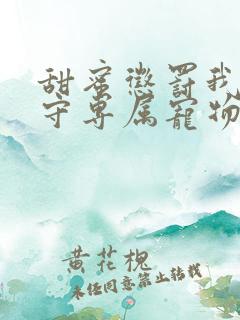 甜蜜惩罚我
守专属宠物
黄花槐
未经同意禁止转载